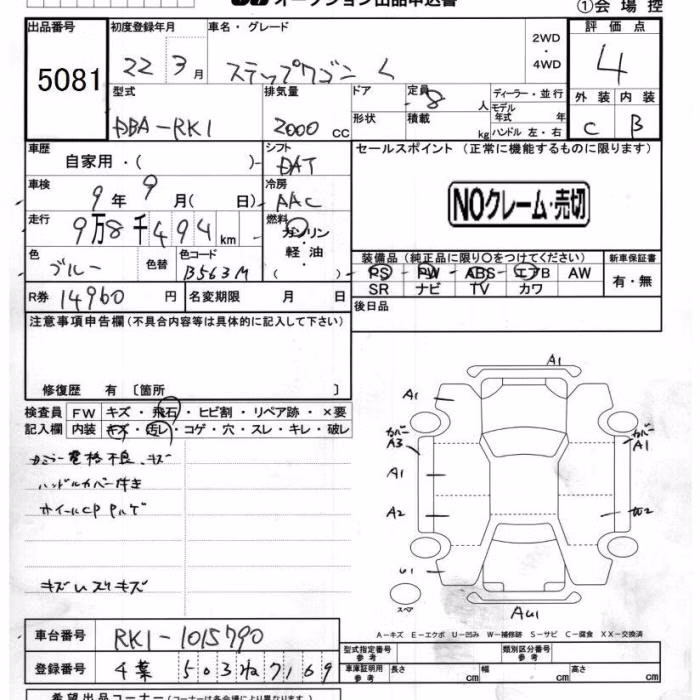 オークション出品申込書
①会場控
出品番号 初度登録年月 車名・グレード 2WD ・4WD 評価点
5081 22 3月 ステップワゴン L 4
型式 排気量 ドア 定員 8 人 ディーラー・並行 外装 内装
DBA-RK1 2000 cc 形状 積載 kg モデル年式 年 ハンドル 左・右 C B
車歴 自家用・( ) シフト DAT セールスポイント (正常に機能するものに限ります)
車検 9年 9月( 日) 冷房 AAC
NOクレーム・売切
走行 9万8千494km 燃料 ガソリン・軽油
色 ブルー 色替 色コード B563M
装備品 (純正品に限り○をつけてください) 新車保証書
PS PW ABS エアB AW 有・無
SR ナビ TV カワ
R券 14960円 名変期限 月 日
後日品
注意事項申告欄 (不具合内容等は具体的に記入して下さい)
修復歴 有 〔箇所 〕
検査員 FW キズ・飛石・ヒビ割・リペア跡・×要
記入欄 内装 キズ・汚レ・コゲ・穴・スレ・キレ・破レ
電格不良、キズ
ハンドルカバー付き
ホイールCP
キズ
A1
A1
カバー A3
カバー A1
A1
A2
W2
U1
スペア
AU1
A-キズ E-エクボ U-凹み W-補修跡 S-サビ C-腐食 XX-交換済
車台番号 RK1-1015790
型式指定番号 参考 類別区分番号 参考
登録番号 千葉 503 ね 7169
車庫証明用 参考 長さ cm 幅 cm 高さ cm
希望出品コーナー (コーナーは各会場により異なります)